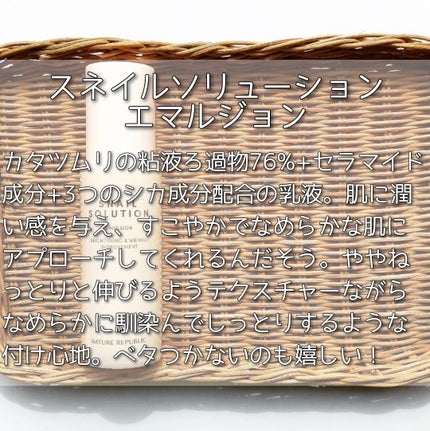 スネイルソリューション
エマルジョン
カタツムリの粘液ろ過物76%+セラマイド
成分+3つのシカ成分配合の乳液。肌に潤
い感を与え、すこやかでなめらかな肌に
アプローチしてくれるんだそう。ややね
っとりと伸びるようテクスチャーながら
なめらかに馴染んでしっとりするような
付け心地。ベタつかないのも嬉しい！
SOLUTION
NATURE REPUBLIC